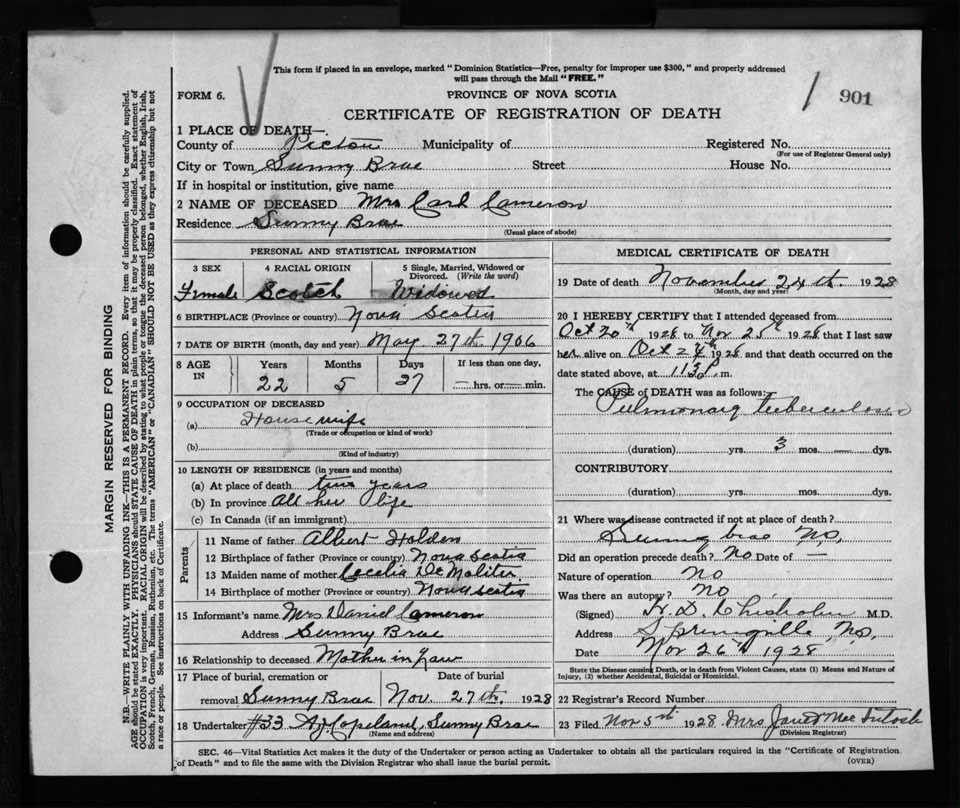 This form if placed in an envelope, marked "Dominion Statistics—Free, penalty for improper use $300," and properly addressed
will pass through the Mail "FREE."
FORM 6.
PROVINCE OF NOVA SCOTIA
901
CERTIFICATE OF REGISTRATION OF DEATH
1 PLACE OF DEATH—
County of Pictou Municipality of Registered No.
(For use of Registrar General only)
City or Town Sunny Brae Street House No.
If in hospital or institution, give name
2 NAME OF DECEASED Mrs Carl Cameron
Residence Sunny Brae
(Usual place of abode)
PERSONAL AND STATISTICAL INFORMATION
3 SEX 4 RACIAL ORIGIN 5 Single, Married, Widowed or Divorced. (Write the word)
Female Scotch Widowed
6 BIRTHPLACE (Province or country) Nova Scotia
7 DATE OF BIRTH (month, day and year) May 27th 1906
8 AGE IN Years Months Days If less than one day,
22 5 27 — hrs. or — min.
9 OCCUPATION OF DECEASED
(a) Housewife
(Trade or occupation or kind of work)
(b)
(Kind of industry)
10 LENGTH OF RESIDENCE (in years and months)
(a) At place of death two years
(b) In province All her life
(c) In Canada (if an immigrant)
Parents
11 Name of father Albert Holden
12 Birthplace of father (Province or country) Nova Scotia
13 Maiden name of mother Cecelia
14 Birthplace of mother (Province or country) Nova Scotia
15 Informant's name Mrs Daniel Cameron
Address Sunny Brae
16 Relationship to deceased Mother in Law
17 Place of burial, cremation or Date of burial
removal Sunny Brae Nov. 27th. 1928
18 Undertaker #33 Copeland, Sunny Brae
(Name and address)
MEDICAL CERTIFICATE OF DEATH
19 Date of death November 24th. 1928
(Month, day and year)
20 I HEREBY CERTIFY that I attended deceased from
Oct 20th 1928 to Nov 25th 1928 that I last saw
her alive on Oct 24th 1928 and that death occurred on the
date stated above, at m.
The CAUSE of DEATH was as follows:
Pulmonary tuberculosis
(duration) yrs. 3 mos. — dys.
CONTRIBUTORY
(duration) yrs. mos. dys.
21 Where was disease contracted if not at place of death?
Sunny brae
Did an operation precede death? No Date of —
Nature of operation no
Was there an autopsy? no
(Signed) H. D. Chisholm M.D.
Address Springville, N.S.
Date Nov 26th 1928
State the Disease causing Death, or in death from Violent Causes, state (1) Means and Nature of
Injury, (2) whether Accidental, Suicidal or Homicidal.
22 Registrar's Record Number
23 Filed Nov 1928 Mrs Janet MacIntosh
(Division Registrar)
SEC. 46—Vital Statistics Act makes it the duty of the Undertaker or person acting as Undertaker to obtain all the particulars required in the "Certificate of Registration
of Death" and to file the same with the Division Registrar who shall issue the burial permit.
(OVER)
MARGIN RESERVED FOR BINDING
N.B.—WRITE PLAINLY WITH UNFADING INK—THIS IS A PERMANENT RECORD. Every item of information should be carefully supplied.
AGE should be stated EXACTLY. PHYSICIANS should STATE CAUSE OF DEATH in plain terms, so that it may be properly classified. Exact statement of
OCCUPATION is very important. RACIAL ORIGIN will be described by stating to what people or tongue the deceased person belonged, whether English, Irish,
Scotch, French, German, Russian, Ruthenian, etc. The terms "AMERICAN" or "CANADIAN" SHOULD NOT BE USED as they express citizenship but not
a race or people. See instructions on back of Certificate.